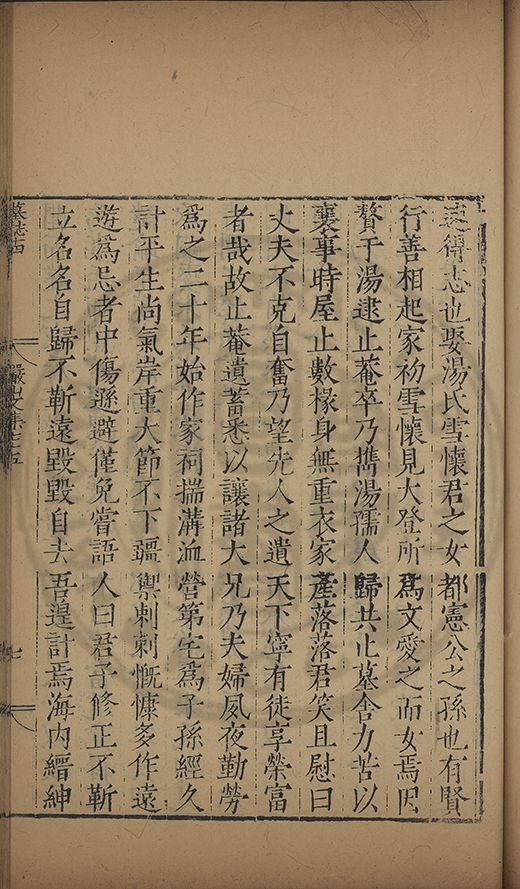 遠得志也娶湯氏雪懷君之女都憲公之孫也有賢
行善相起家初雪懷見大登所爲文愛之而女焉因
贅于湯逮止菴卒乃攜湯孺人歸共止墓舍力苦以
襄事時屋止數椽身無重衣家產落落君笑且慰曰
丈夫不克自奮乃望先人之遺天下寧有徒享榮富
者哉故止菴遺蓄悉以讓諸大兄乃夫婦夙夜勤勞
爲之二十年始作家祠揣溝洫營第宅爲子孫經久
計平生尚氣岸重大節不下疆禦刺刺慨慷多作遠
遊爲忌者中傷遜避僅免嘗語人曰君子修正不蘄
立名名自歸不蘄遠毀毀自去吾遑計焉海内縉紳
墓誌古
七